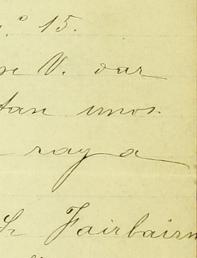 º 15.
V. dar
tan unos
raya
Fairbairn